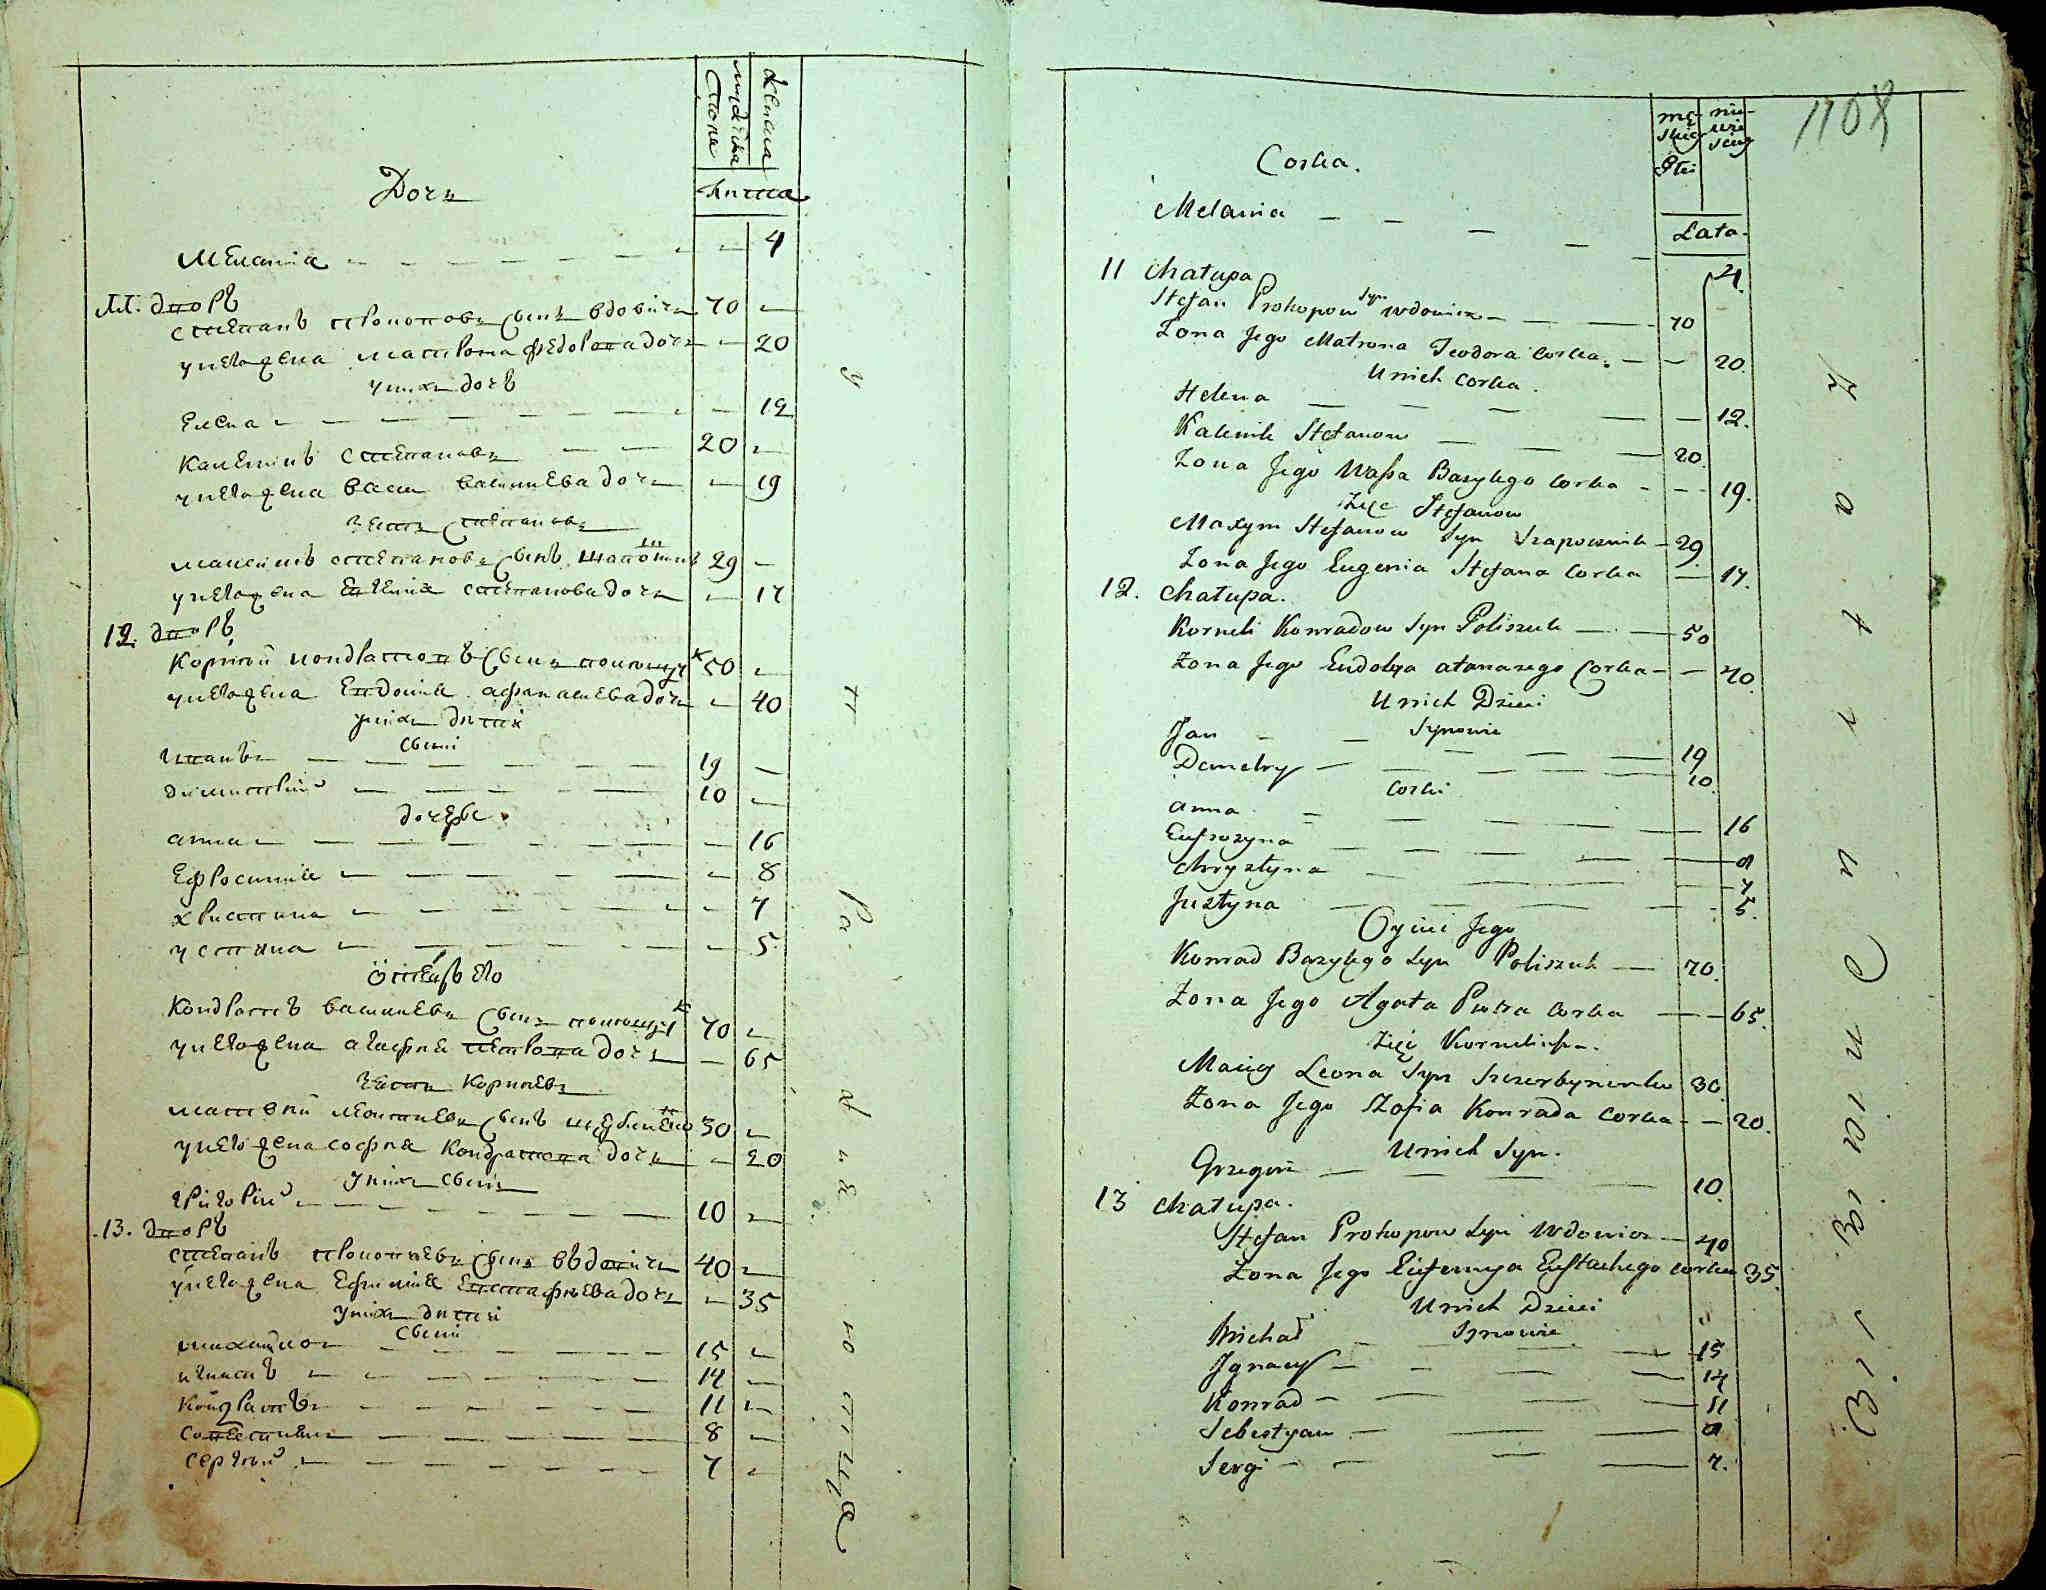 Дочъ
Мелания 4
11. дворъ
степанъ прокоповъ сынъ вдовичъ 70
унегожена матрона федорова дочъ 20
унихъ дочъ
елена 12
каленикъ степановъ 20
унегожена васса василиева дочъ 19
зять степановъ
максимъ степановъ сынъ 29
унегожена евгения степанова дочъ 17
12. дворъ
корнилий кондратовъ сынъ полищукъ 50
унегожена евдокия афанасиева дочъ 40
унихъ дети
сыни
иванъ 19
димитрий 10
дочеры
анна 16
ефросиния 8
христина 7
устина 5
отецъ его
кондратъ василиевъ сынъ полищукъ 70
унегожена агафия петрова дочъ 65
зять корниевъ
матвей леонтиевъ сынъ 30
унегожена софия кондратова дочъ 20
унихъ сынъ
григорий 10
13. дворъ
степанъ прокопиевъ сынъ вдовичъ 40
унегожена ефимия евстафиева дочъ 35
унихъ дети
сыни
михайло 15
игнатъ 14
кондратъ 11
севестиянъ 8
сергий 7
1108
męskiej płci
niewieściej
Lata.
Corka.
Melania 4.
11 Chałupa
Stefan Prokopow Syn Wdowicz 70
Żona Jego Matrona Teodora Corka. 20.
U nich Corka.
Helena 12.
Kalenik Stefanow 20.
Żona Jego Wassa Bazylego Corka 19.
Zięć Stefanow
Maxym Stefanow Syn Szapocznik 29.
Żona Jego Eugenia Stefana Corka 17.
12. Chałupa.
Korneli Konradow Syn Poliszuk 50
Żona Jego Eudokya Atanazego Corka 40.
U nich Dzieci
Synowie
Jan 19
Demetry 10.
Corki
Anna 16
Eufrozyna 8
Chrystyna 7
Justyna 5.
Oyciec Jego
Konrad Bazylego Syn Poliszuk 70.
Żona Jego Agata Piotra Corka 65.
Zięć Kornelich.
Maciey Leona Syn Szczerbynenko 30.
Żona Jego Zofia Konrada Corka 20.
U nich Syn.
Grzegorz 10.
13 Chałupa.
Stefan Prokopow Syn Wdowicz 40
Żona Jego Eufemya Eustachego Corka 35.
U nich Dzieci
Synowie
Michał 15
Jgnacy 14
Konrad 11
Sebestyan 8
Sergi 7.